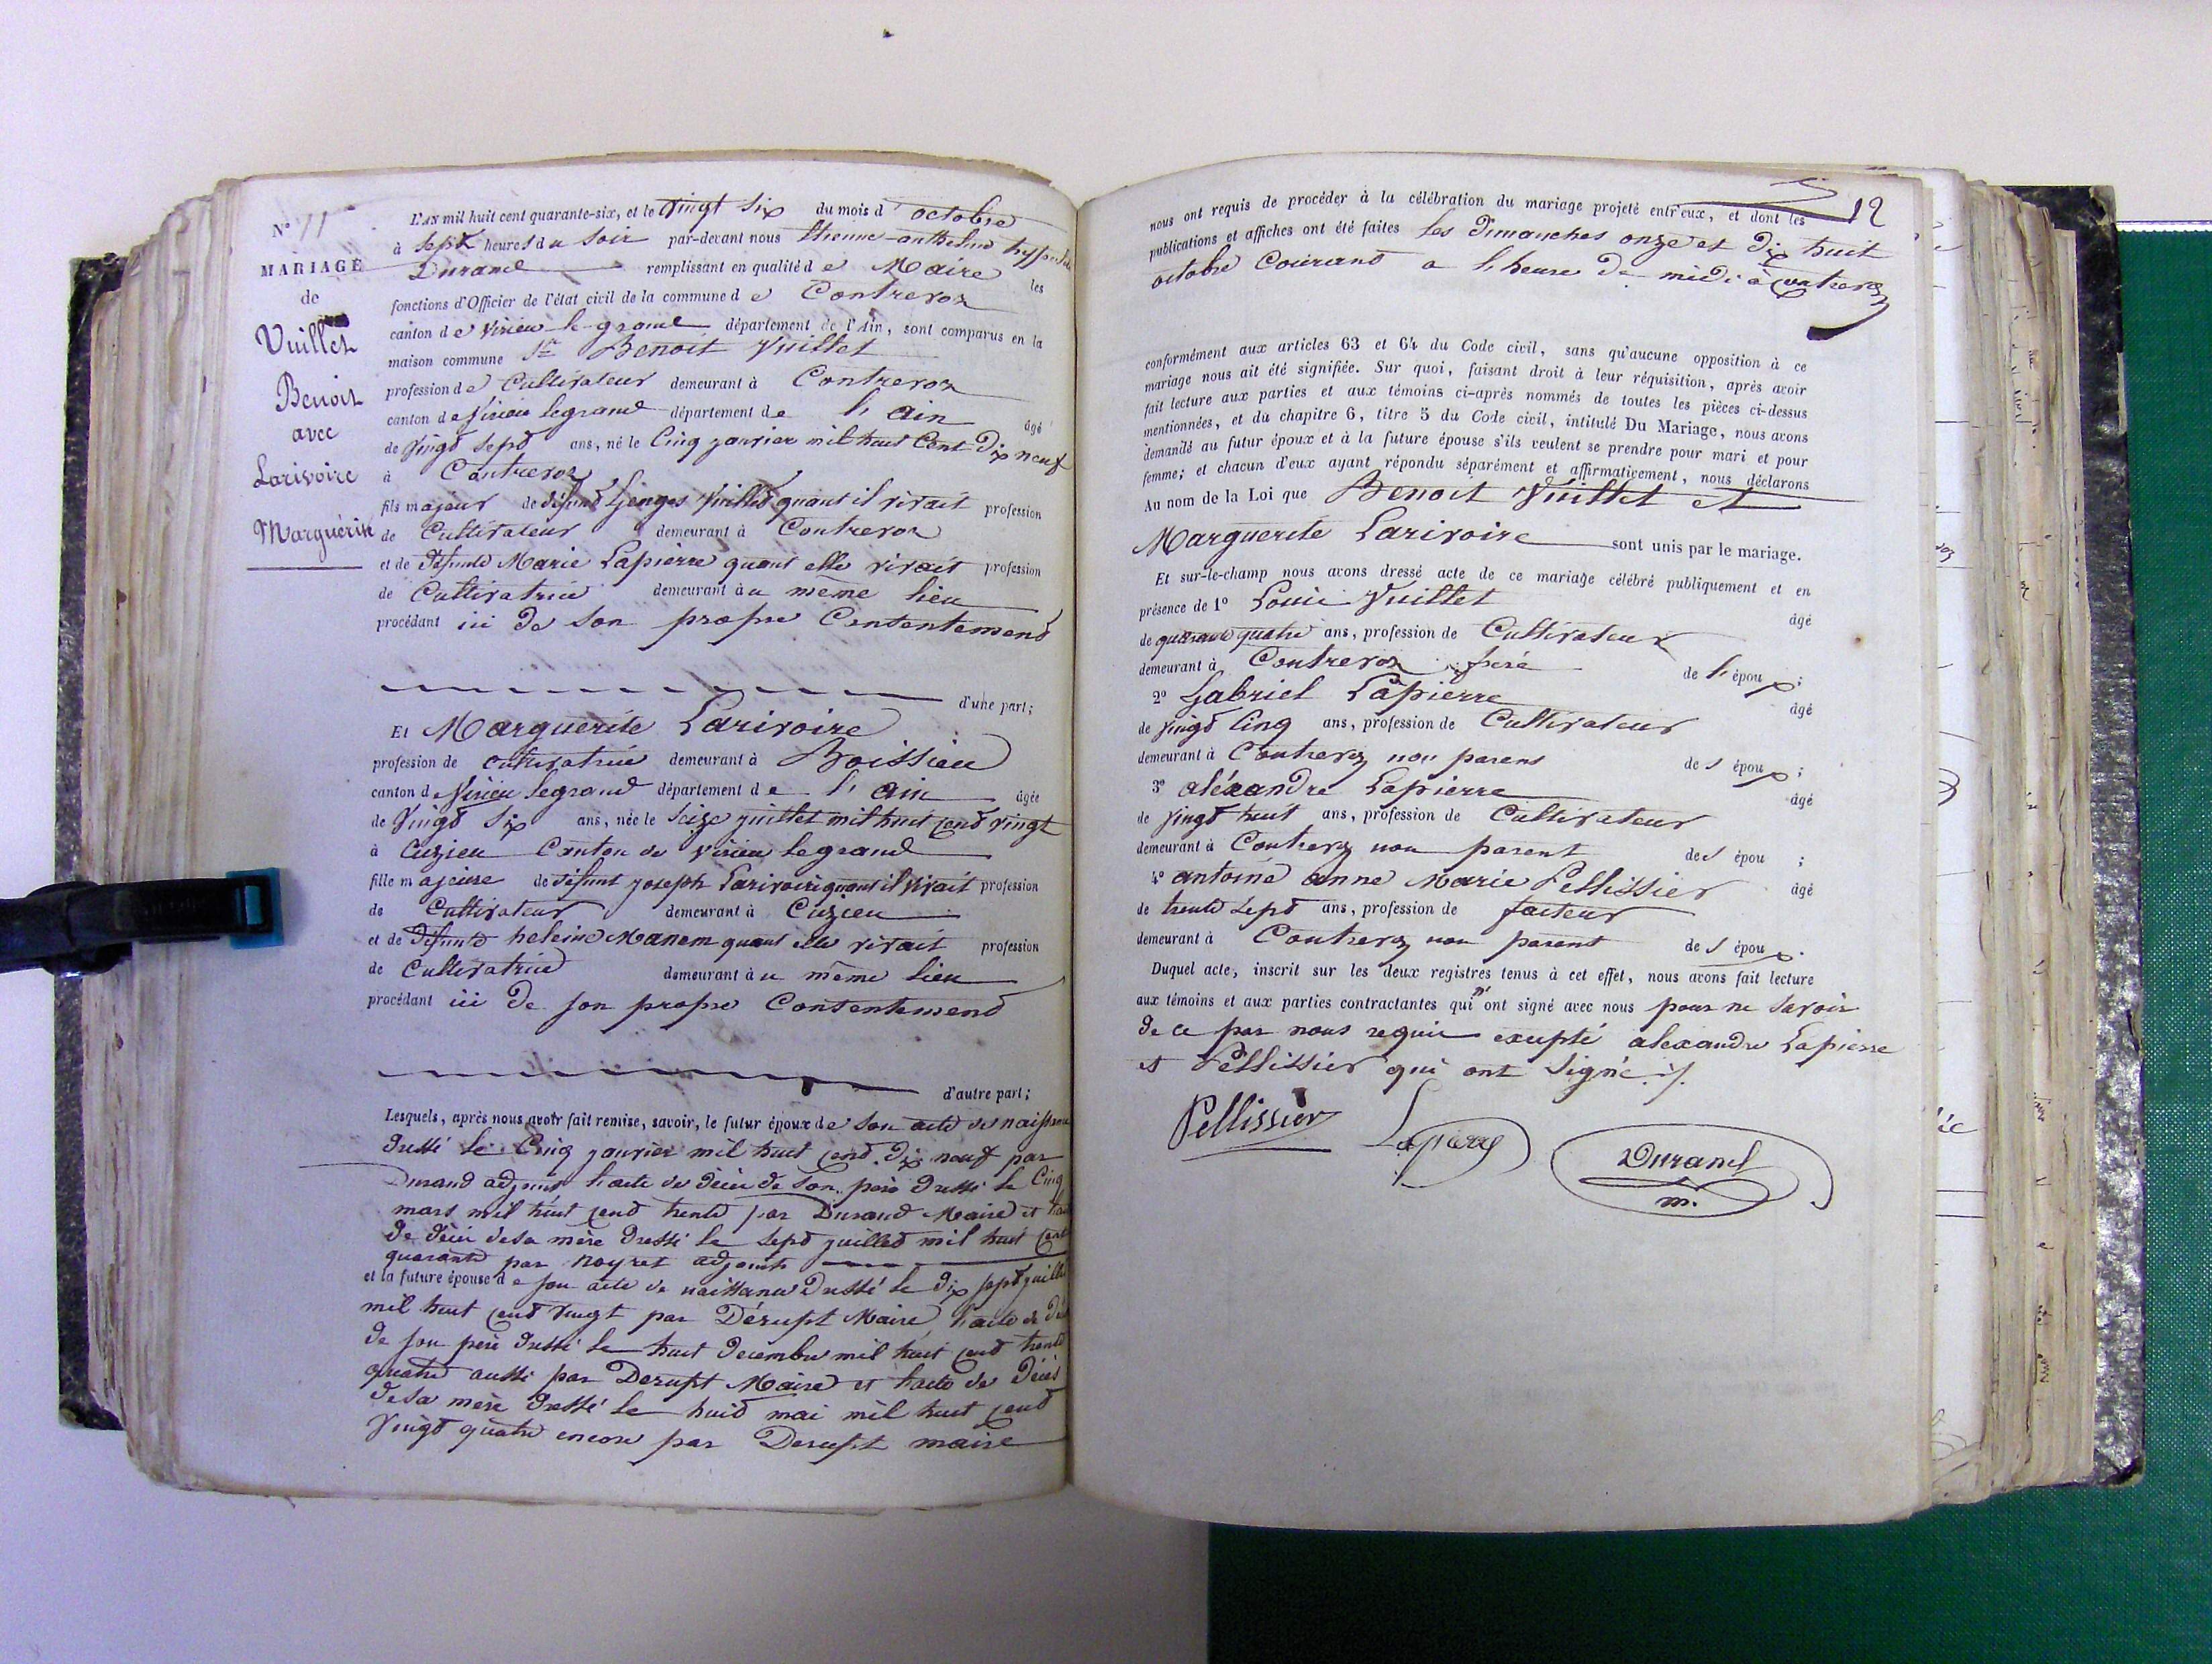 N° 11
MARIAGE
de
Vuillet
Benoit
avec
Larivoire
Marguerite
L'AN mil huit cent quarante-six, et le Vingt Six du mois d'octobre
à sept heures du soir par-devant nous Etienne-anthelme
Durand remplissant en qualité de Maire les
fonctions d'Officier de l'état civil de la commune de Contrevoz
canton de Virieu-le-grand département de l'Ain, sont comparus en la
maison commune Sr Benoit Vuillet
profession de Cultivateur demeurant à Contrevoz
canton de Virieu legrand département de l'ain âgé
de Vingt sept ans, né le Cinq janvier mil huit Cent Dix neuf
à Contrevoz
fils majeur de défunt Genges Vuillet quant il vivait profession
de Cultivateur demeurant à Contrevoz
et de Défunte Marie Lapierre quant elle vivait profession
de Cultivatrice demeurant à u même lieu
procédant ici de son propre Contentement
d'une part;
Et Marguerite Larivoire
profession de cultivatrice demeurant à Boissieu
canton de Virieu legrand département de l'ain âgée
de Vingt Six ans, née le Seize juillet mil huit cent vingt
à Cuzieu Canton de Virieu legrand
fille majeure de défunt joseph Larivoire quant il vivait profession
de Cultivateur demeurant à Cuzieu
et de Défunte heleine Manem quant elle vivait profession
de Cultivatrice demeurant à u même lieu
procédant ici de son propre Contentement
d'autre part;
Lesquels, après nous avoir fait remise, savoir, le futur époux de son acte de naissance
dressé le Cinq janvier mil huit cent dix neuf par
Durand adjoint l'acte de décès de son père dressé le Cinq
mars mil huit cent trente par Durand Maire et
de décès de sa mère dressé le sept juillet mil huit cent
quarante par Noyret adjoint
et la future épouse de son acte de naissance Dressé le dix sept juillet
mil huit cent vingt par Dérupt Maire l'acte de
de son père dressé le huit decembre mil huit cent trente
quatre aussi par Derupt Maire et l'acte de Décès
de sa mère dressé le huit mai mil huit cent
Vingt quatre encore par Derupt maire
12
nous ont requis de procéder à la célébration du mariage projeté entr'eux, et dont les
publications et affiches ont été faites les Dimanches onze et dix huit
octobre Courant a l'heure de midi à Contrevoz
conformément aux articles 63 et 64 du Code civil, sans qu'aucune opposition à ce
mariage nous ait été signifiée. Sur quoi, faisant droit à leur réquisition, après avoir
fait lecture aux parties et aux témoins ci-après nommés de toutes les pièces ci-dessus
mentionnées, et du chapitre 6, titre 5 du Code civil, intitulé Du Mariage, nous avons
demandé au futur époux et à la future épouse s'ils veulent se prendre pour mari et pour
femme; et chacun d'eux ayant répondu séparément et affirmativement, nous déclarons
Au nom de la Loi que Benoit Vuillet et
Marguerite Larivoire sont unis par le mariage.
Et sur-le-champ nous avons dressé acte de ce mariage célébré publiquement et en
présence de 1° Louis Vuillet âgé
de quarante quatre ans, profession de Cultivateur
demeurant à Contrevoz frere de l'époux;
2° Gabriel Lapierre âgé
de vingt Cinq ans, profession de Cultivateur
demeurant à Contrevoz non parens des époux;
3° aléxandre Lapierre âgé
de vingt huit ans, profession de Cultivateur
demeurant à Contrevoz non parent des épou;
4° antoine anne Marie Pellissier âgé
de trente Sept ans, profession de facteur
demeurant à Contrevoz non parent des époux.
Duquel acte, inscrit sur les deux registres tenus à cet effet, nous avons fait lecture
aux témoins et aux parties contractantes qui n'ont signé avec nous pour ne savoir
de ce par nous requis exepté alexandre Lapierre
et Pellissier qui ont Signé ./.
Pellissier Lapierre Durand
m.